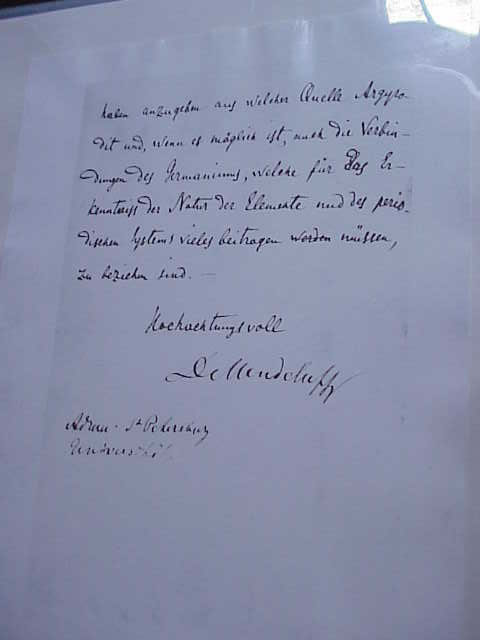 haben anzugeben aus welcher Quelle Argyro-
dit und, wenn es möglich ist, auch die Verbin-
dungen des Germaniums, welche für das Er-
kenntniss der Natur der Elemente und des perio-
dischen Systems vieles beitragen werden müssen,
zu beziehen sind. —
Hochachtungsvoll
D. Mendeleeff
St Petersburg
Universität